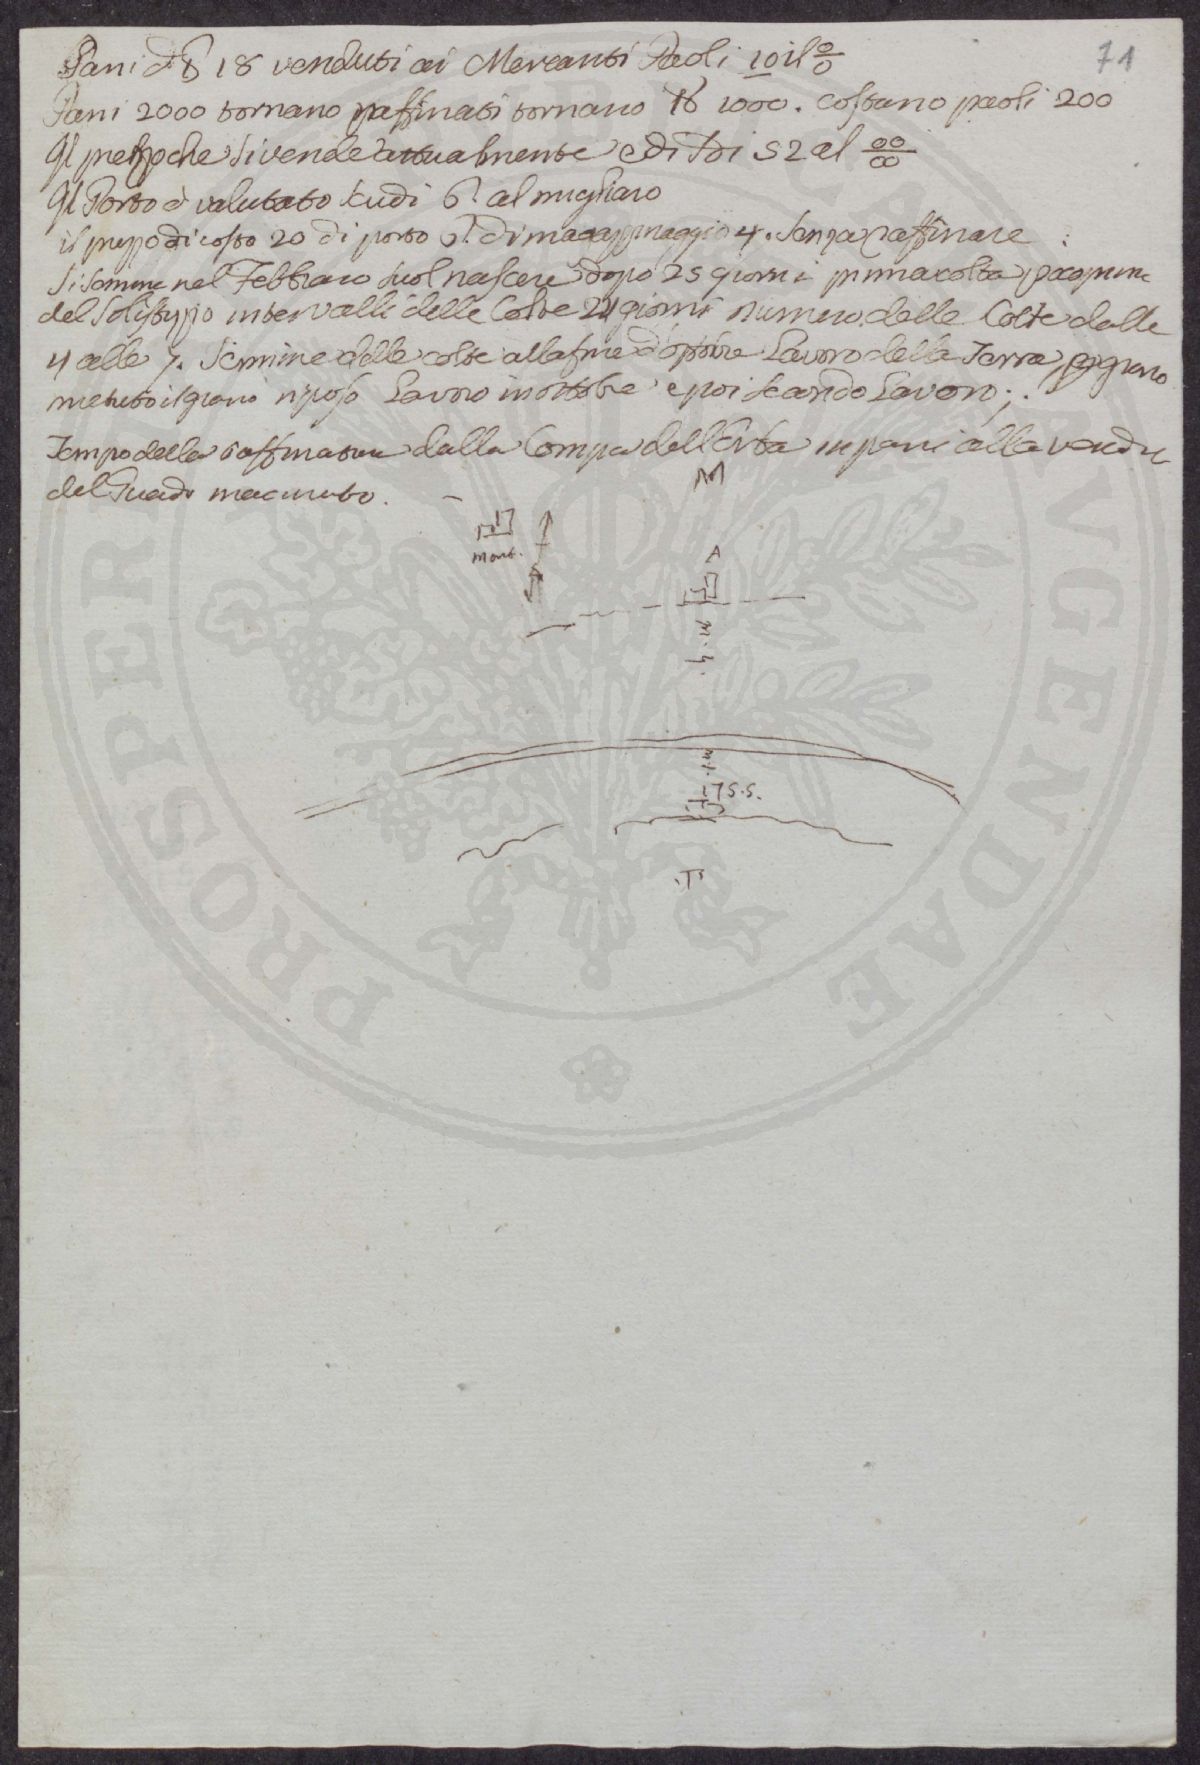 71
Pani d ℔ 18 venduti ai Mercanti Paoli 10 il %
Pani 2000 tornano raffinati tornano ℔ 1000. costano paoli 200
Il prezzo che si vende attualmente è di 52 al
Il Porto è valutato scudi 6 al migliaro
il prezzo di costo 20 di porto 6. di magazzinaggio 4. senza raffinare :
Si semina nel Febbraro suol nascere dopo 25 giorni prima colta
del Solistizio intervalli delle Colte 24 giorni numero delle Colte dalle
4 alle 7. Termine delle colte alla fine d'ottobre Lavoro della Terra, grano
mietuto il grano riposo Lavoro in ottobre e poi secondo Lavoro;.
Tempo della raffinatura dalla Compra dell'Erba in pani alla vendita
del Guado macinato.
M
mont.
A
m. 4.
m. 1.
S.S.
T
PROSPERITATI PUBLICAE AVGENDAE